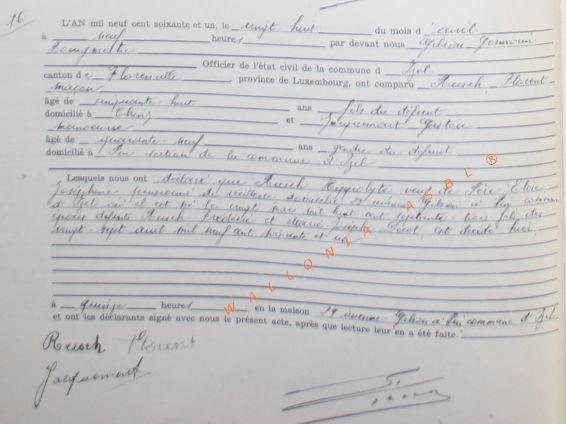 16
L'AN mil neuf cent soixante et un, le vingt-huit du mois d'avril
à neuf heures, par devant nous Gilson Germain
Bourgmestre
Officier de l'état civil de la commune d'Izel
canton de Florenville, province de Luxembourg, ont comparu Rusch, Florent
maçon
âgé de cinquante-huit ans fils du défunt
domicilié à Chiny et Jacquemart Gaston
manœuvre
âgé de quarante-neuf ans gendre du défunt
domicilié à Pin section de la commune d'Izel
Lesquels nous ont déclaré que Rusch Hippolyte veuf de Élise
Joséphine pensionné de vieillesse domicilié avenue Gilson à Pin commune
d'Izel où il est né le vingt mai mil huit cent septante-trois fils des
époux défunts Rusch Frédéric et Marie Joseph est décédé hier
vingt-sept avril mil neuf cent soixante et un
à quinze heures en la maison 29 avenue Gilson à Pin commune d'Izel
et ont les déclarants signé avec nous le présent acte, après que lecture leur en a été faite.
Rusch Florent
Jacquemart
WALLONIA ASBL ®